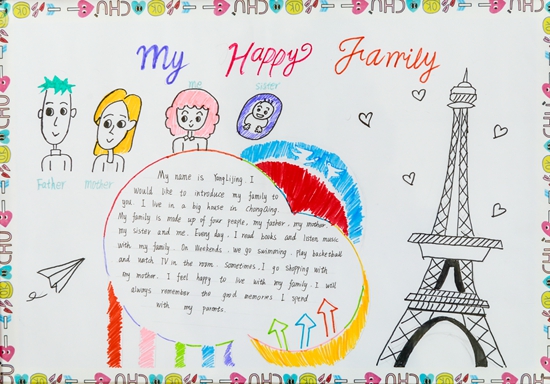 My Happy Family
me
sister
Father
mother
My name is YangLijing. I
would like to introduce my family to
you. I live in a big house in ChongQing.
My family is made up of four people, my father, my mother,
my sister and me. Every day, I read books and listen music
with my family. On Weekends, we go swimming, play basketball
and watch TV in the room. Sometimes, I go shopping with
my mother. I feel happy to live with my family. I will
always remember the good memories I spend
with my parents.